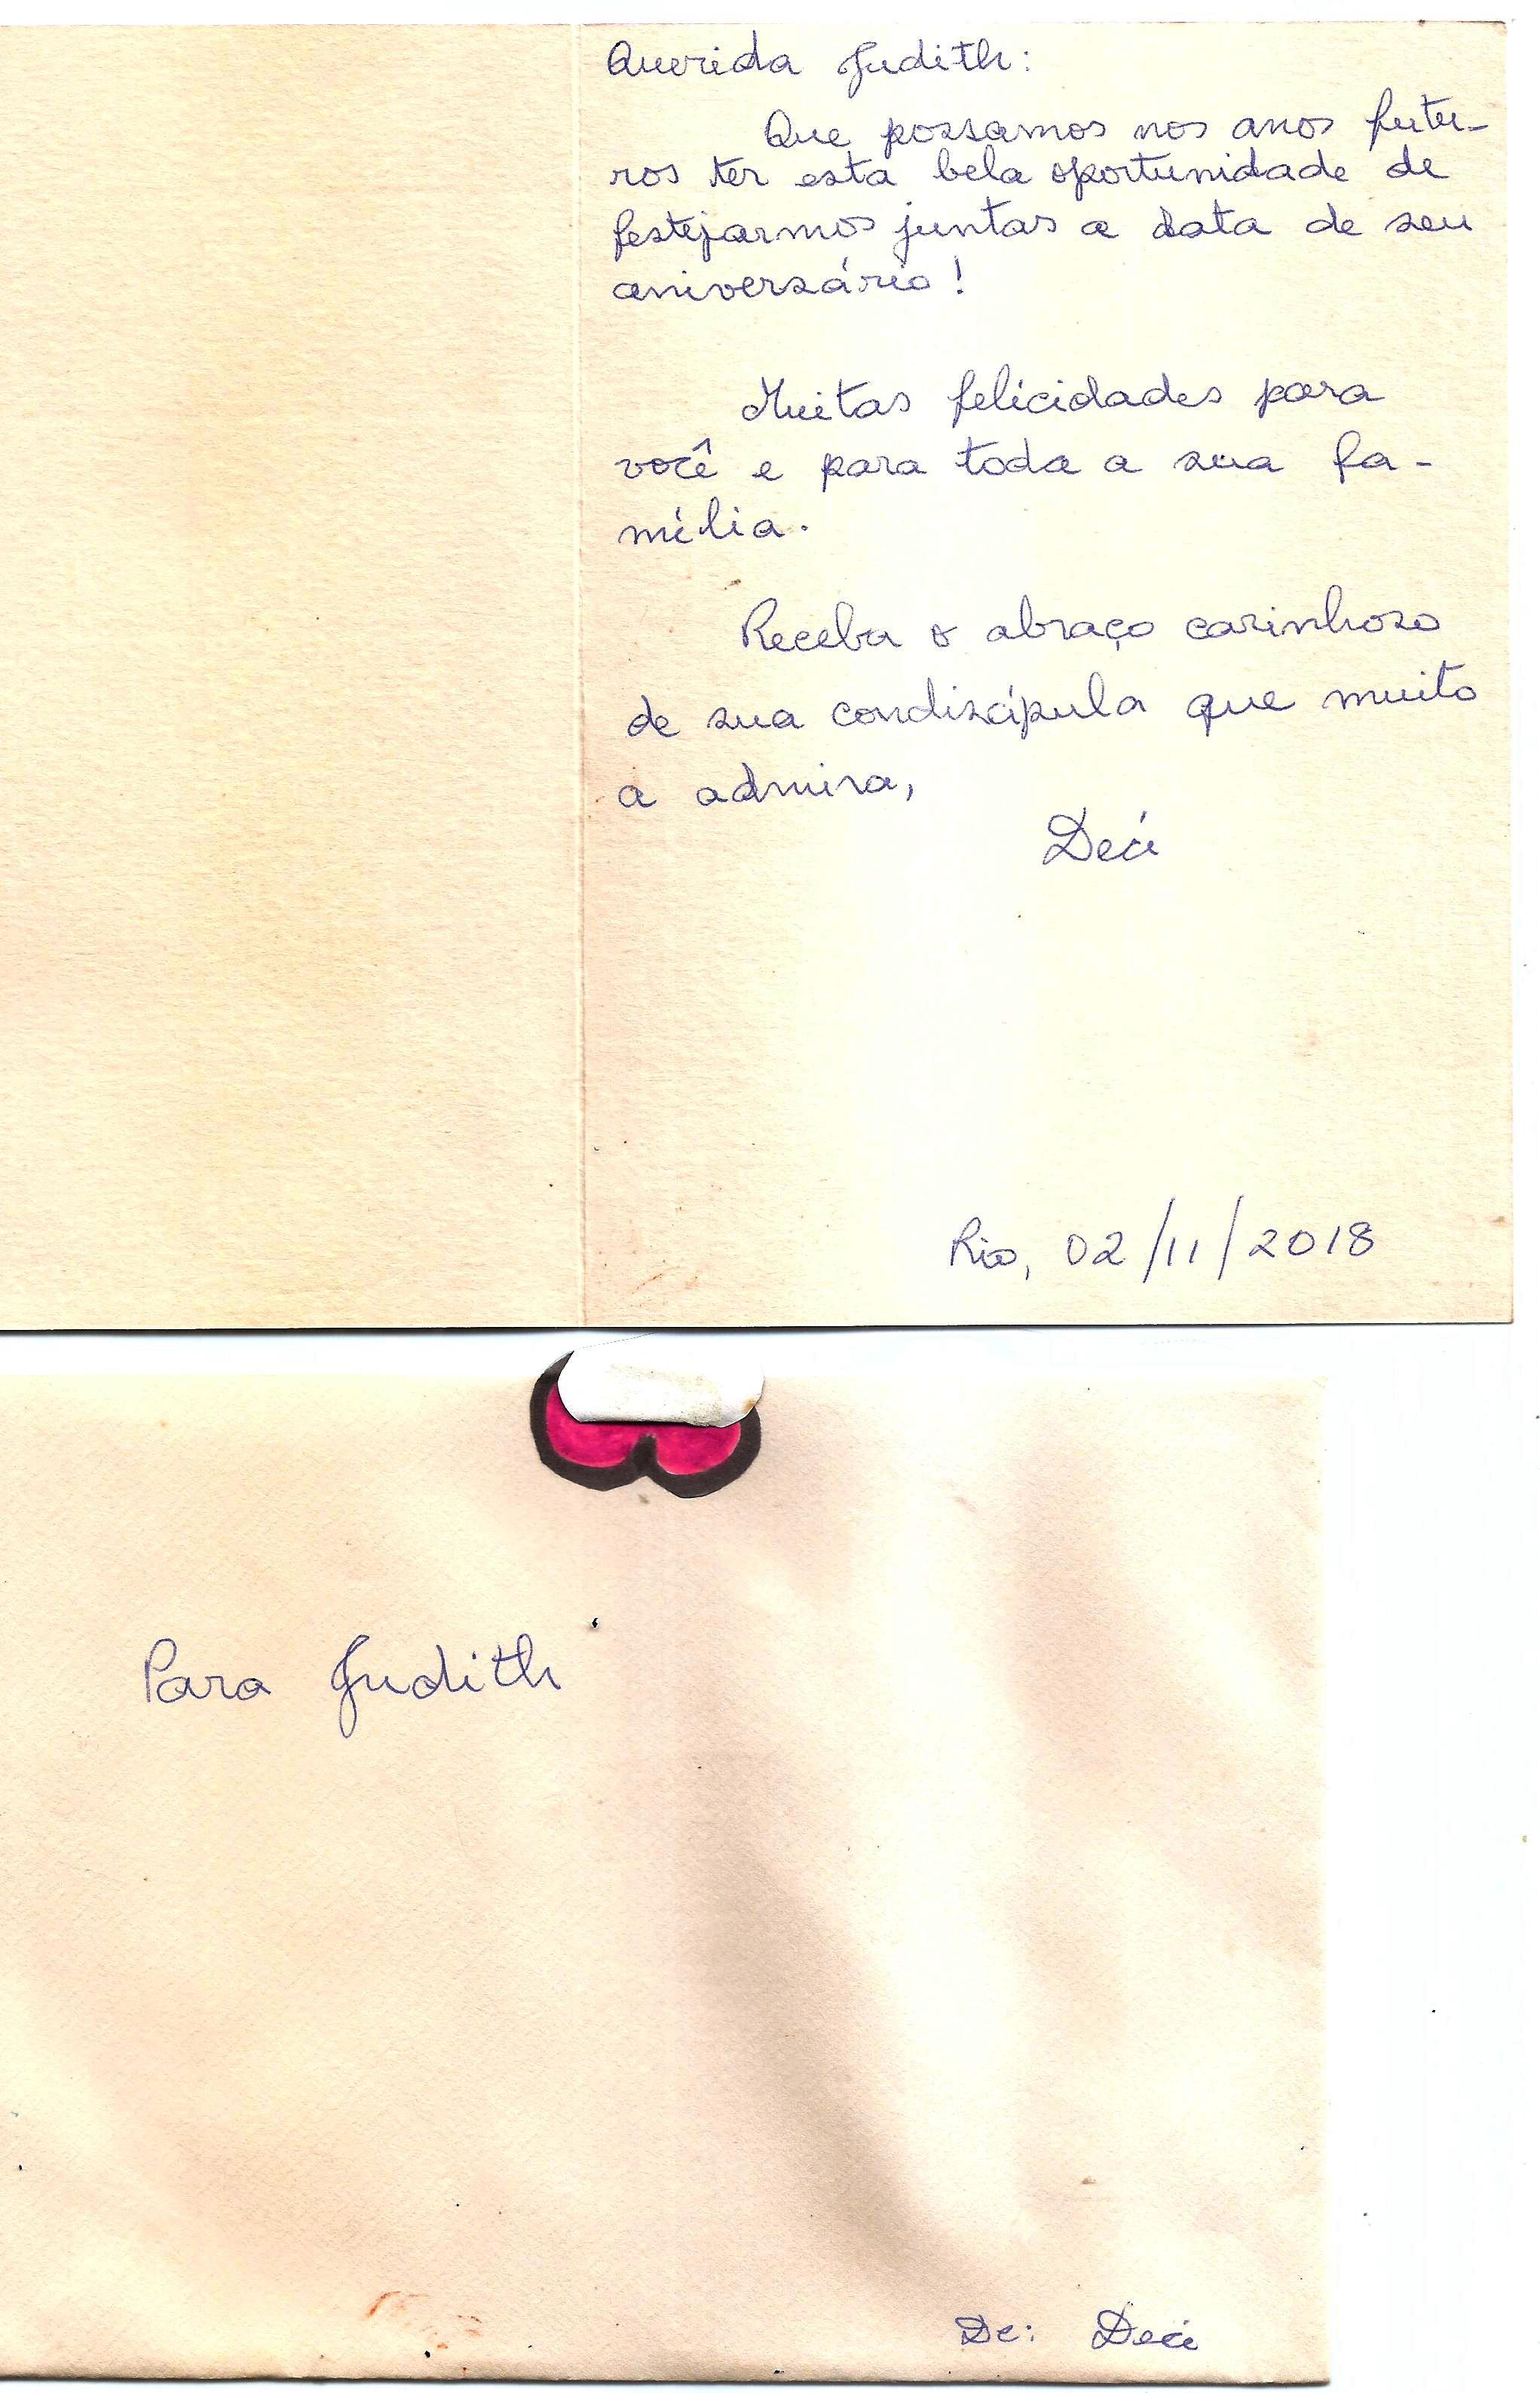 Querida Judith:
Que possamos nos anos futu-
ros ter esta bela oportunidade de
festejarmos juntas a data de seu
aniversário!
Muitas felicidades para
você e para toda a sua fa-
mília.
Receba o abraço carinhoso
de sua condiscípula que muito
a admira,
Deci
Rio, 02/11/2018
Para Judith
De: Deci